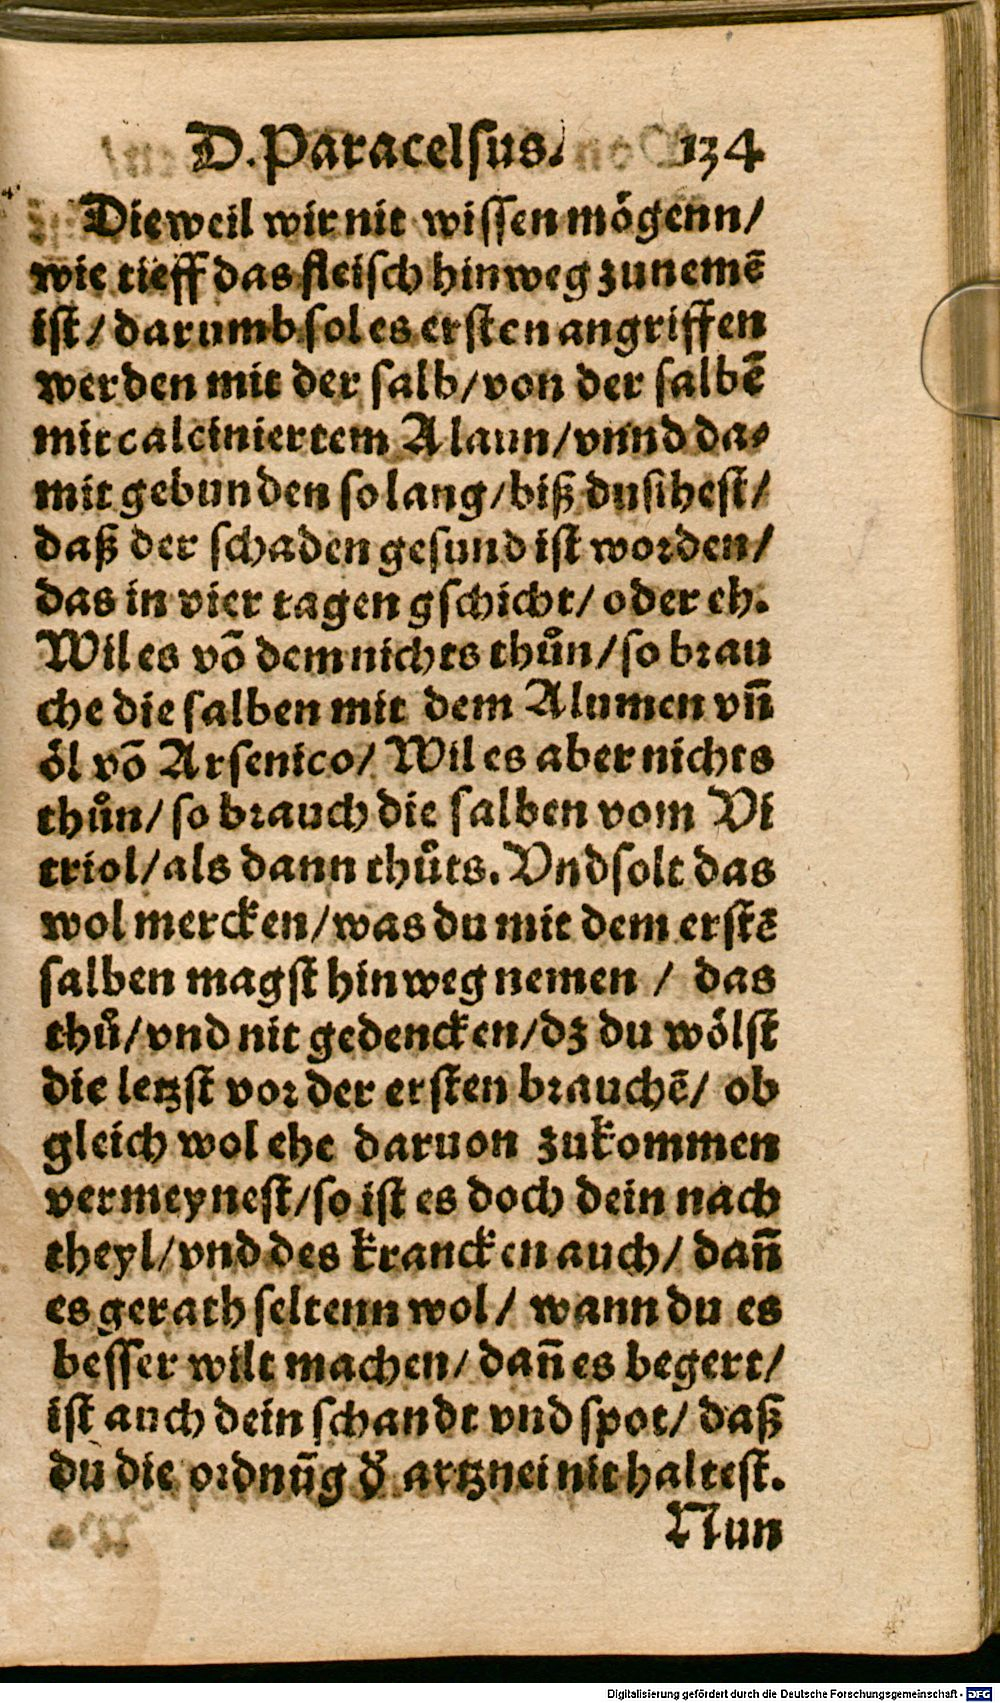 D. Paracelsus. 134
Dieweil wir nit wissen mögenn/
wie tieff das fleisch hinweg zunemē
ist/ darumb sol es ersten angriffen
werden mit der salb/ von der salbē
mit calciniertem Alaun/ vnnd da⸗
mit gebunden so lang/ biß du sihest/
daß der schaden gesund ist worden/
das in vier tagen gschicht/ oder eh.
Wil es võ dem nichts thůn/ so brau
che die salben mit dem Alumen vñ
öl võ Arsenico/ Wil es aber nichts
thůn/ so brauch die salben vom Vi
triol/ als dann thůts. Vnd solt das
wol mercken/ was du mit dem erstē
salben magst hinweg nemen / das
thů/ vnd nit gedencken/ dz du wölst
die letzst vor der ersten brauchē/ ob
gleich wol ehe daruon zukommen
vermeynest/ so ist es doch dein nach
theyl/ vnd des krancken auch/ dañ
es gerath seltenn wol/ wann du es
besser wilt machen/ dañ es begert/
ist auch dein schandt vnd spot/ daß
du die ordnũg d̕ artznei nit haltest.
Nun
Digitalisierung gefördert durch die Deutsche Forschungsgemeinschaft - DFG